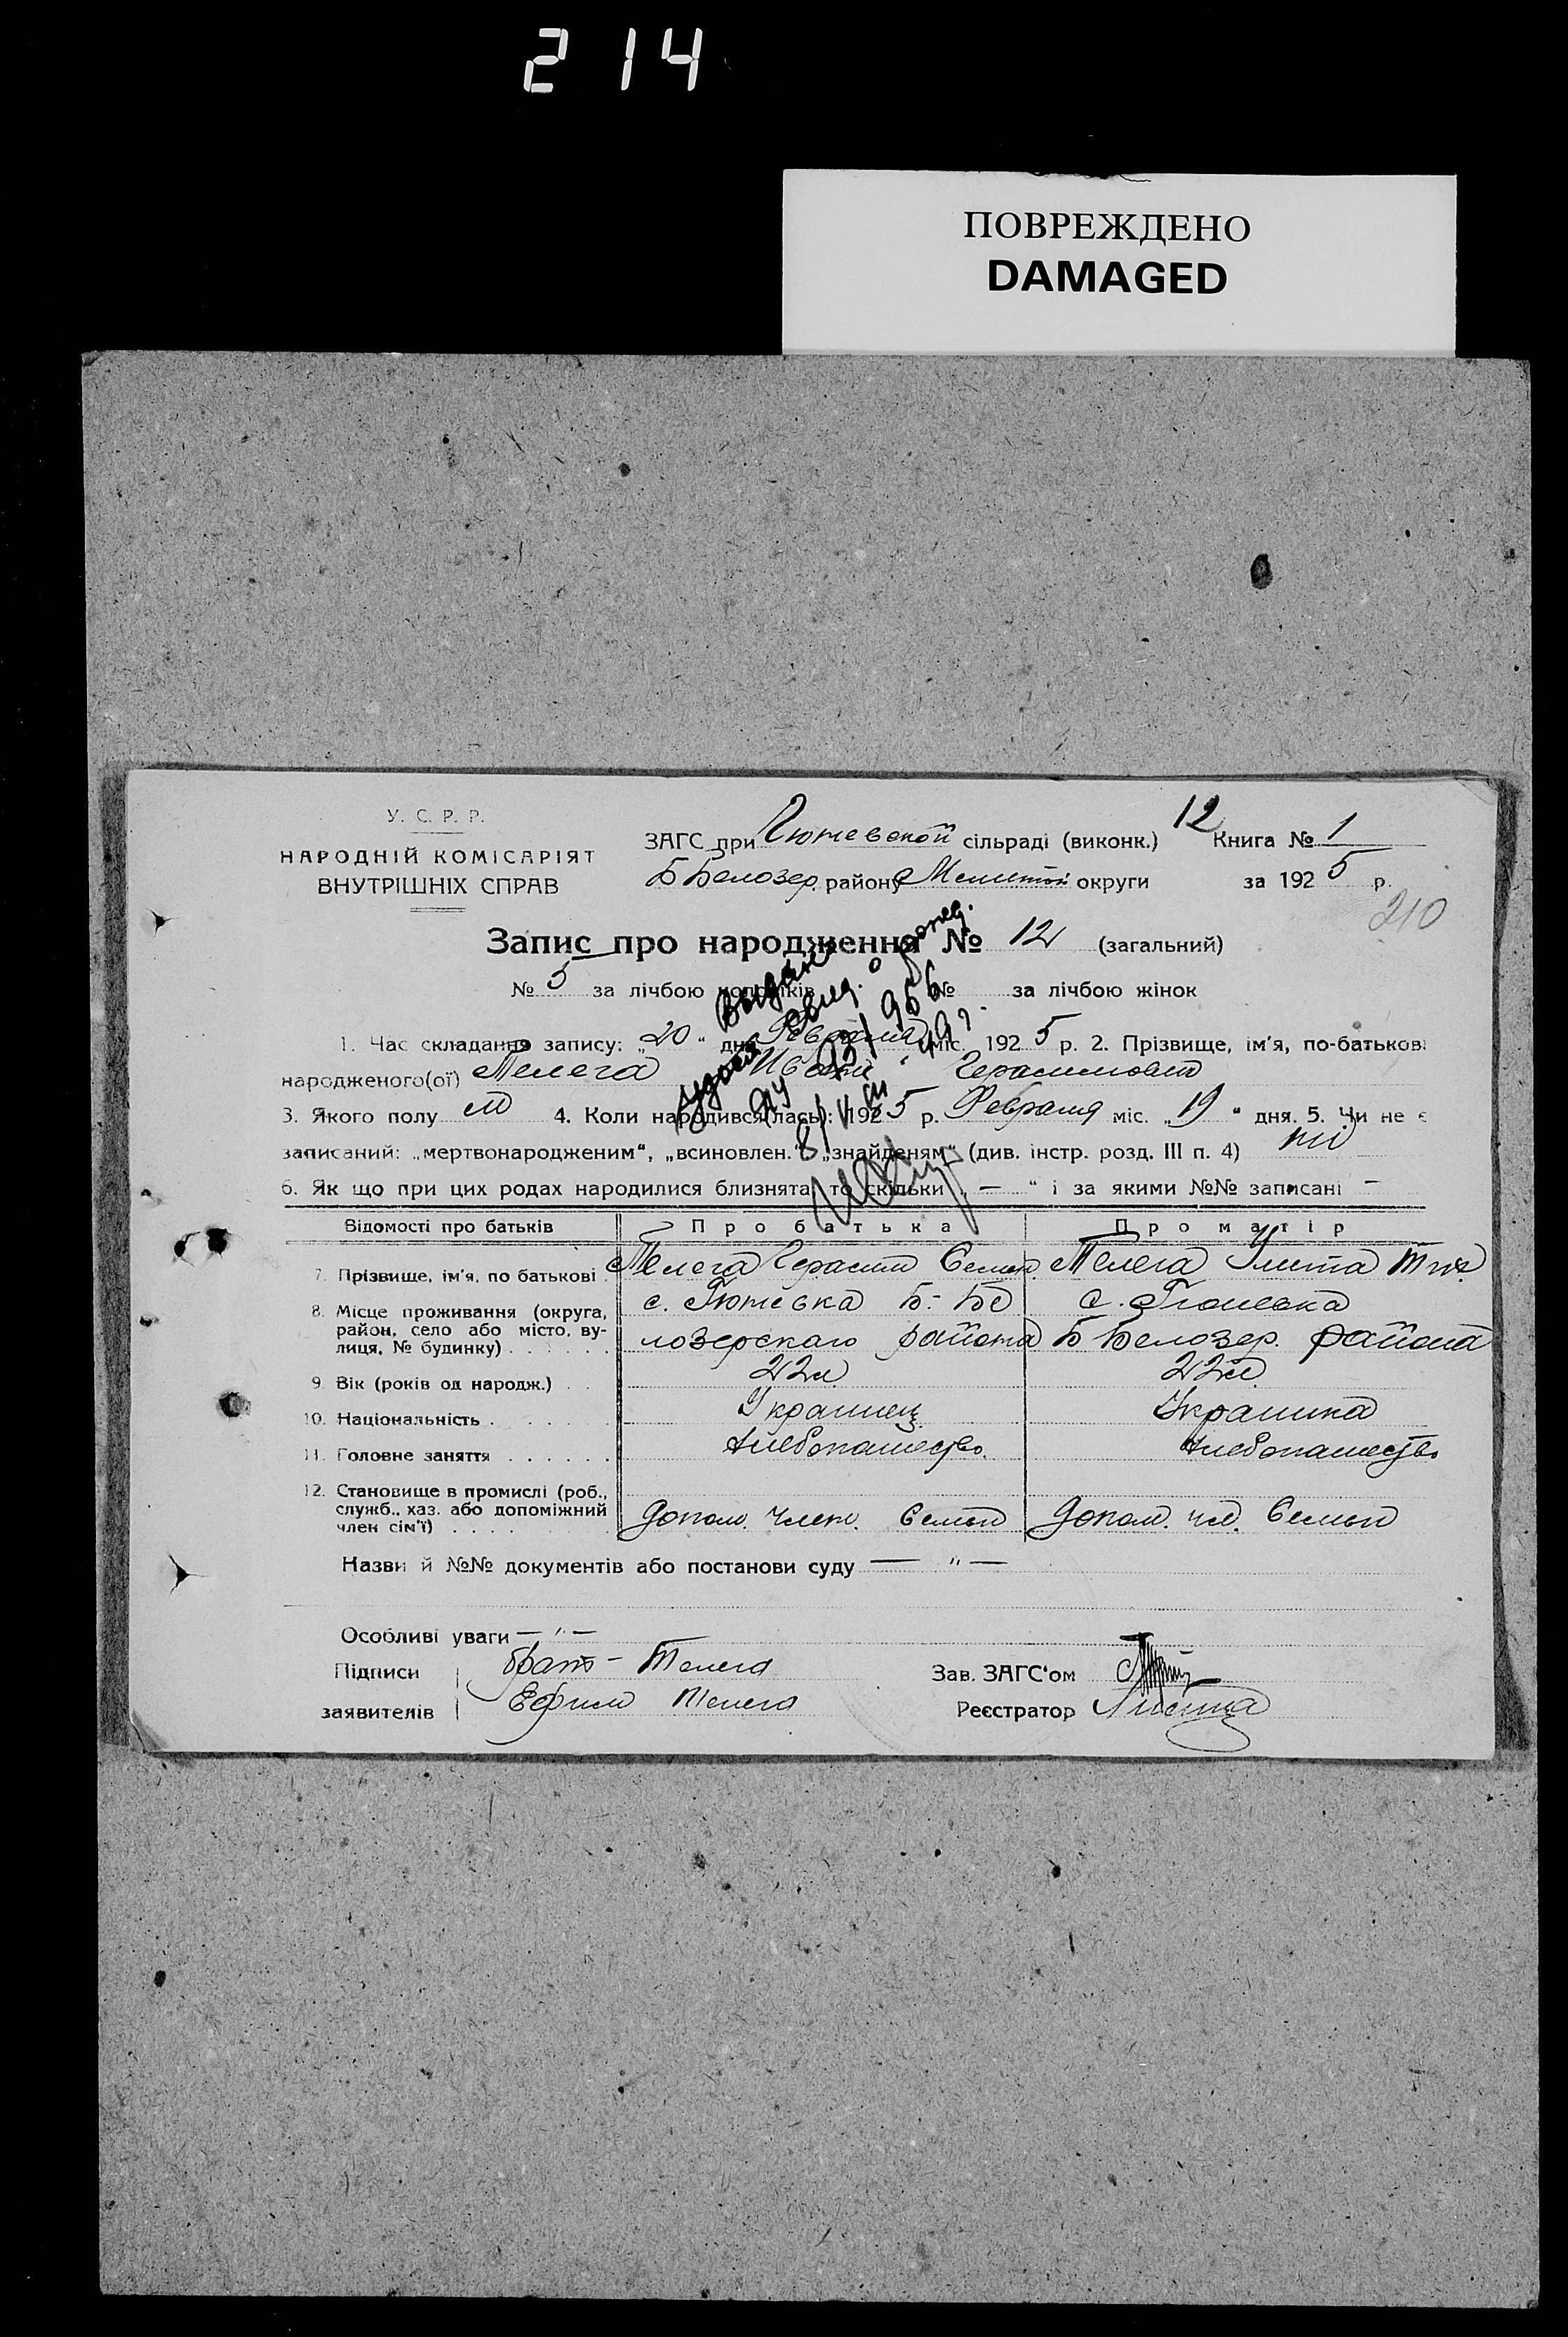 214
ПОВРЕЖДЕНО
DAMAGED
У. С. Р. Р.
НАРОДНІЙ КОМІСАРІЯТ
ВНУТРІШНІХ СПРАВ
12
ЗАГС при Тюшевской сільраді (виконк.) Книга № 1
Б Белозер. району Мелитоп округи за 1925 р.
210
Запис про народження № 12 (загальний)
№ 5 за лічбою чоловіків № за лічбою жінок
Выдано
свид. о рожд.
1. Час складання запису: „20“ дня Февраля міс. 1925 р. 2. Прізвище, ім'я, по-батькові
народженого(ої) Телега Иван Герасимович
3. Якого полу м 4. Коли народився(лась): 1925 р. Февраля міс. „19“ дня. 5. Чи не є
записаний: „мертвонародженим“, „всиновлен.“ „знайденям“ (див. інстр. розд. III п. 4) ні
6. Як що при цих родах народилися близнята, то скільки „ — “ і за якими №№ записані —
Відомості про батьків Про батька Про матір
7. Прізвище, ім'я, по батькові Телега Герасим Семен. Телега Улита
8. Місце проживання (округа, район, село або місто, вулиця, № будинку) с. Тюшевка Б.-Бе с. Тюшевка
лозерского района Б Белозер. района
9. Вік (років од народж.) 22 л 22 л
10. Національність Украинец Украинка
11. Головне заняття Хлебопашество. Хлебопашество
12. Становище в промислі (роб., служб., хаз. або допоміжний член сім'ї) Допом. член. Семьи Допом. чл. Семьи
Назви й №№ документів або постанови суду — " —
Особливі уваги — " —
Підписи брат – Телега Зав. ЗАГС'ом
заявителів Ефим Телега Реєстратор